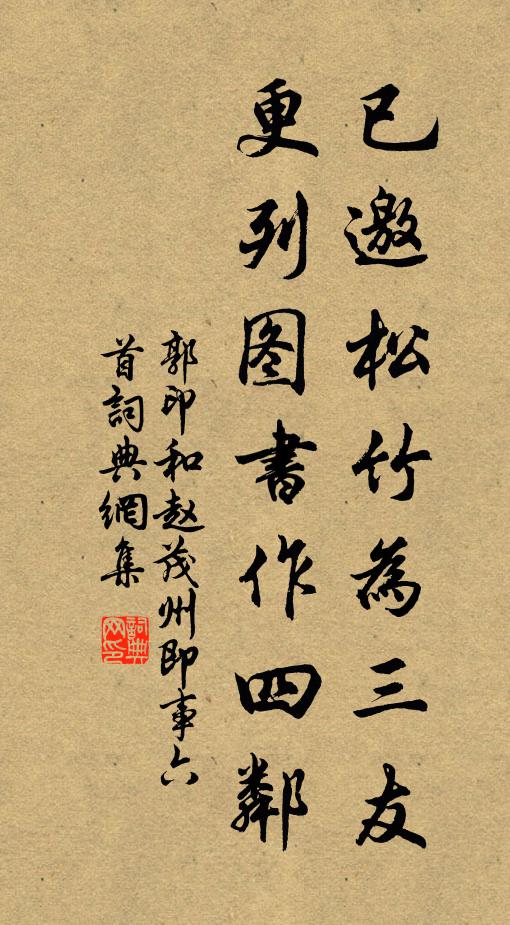 已邀松竹為三友
更列图書作四鄰
郭印和赵茂州即事六
首詞典網集
詞典网印